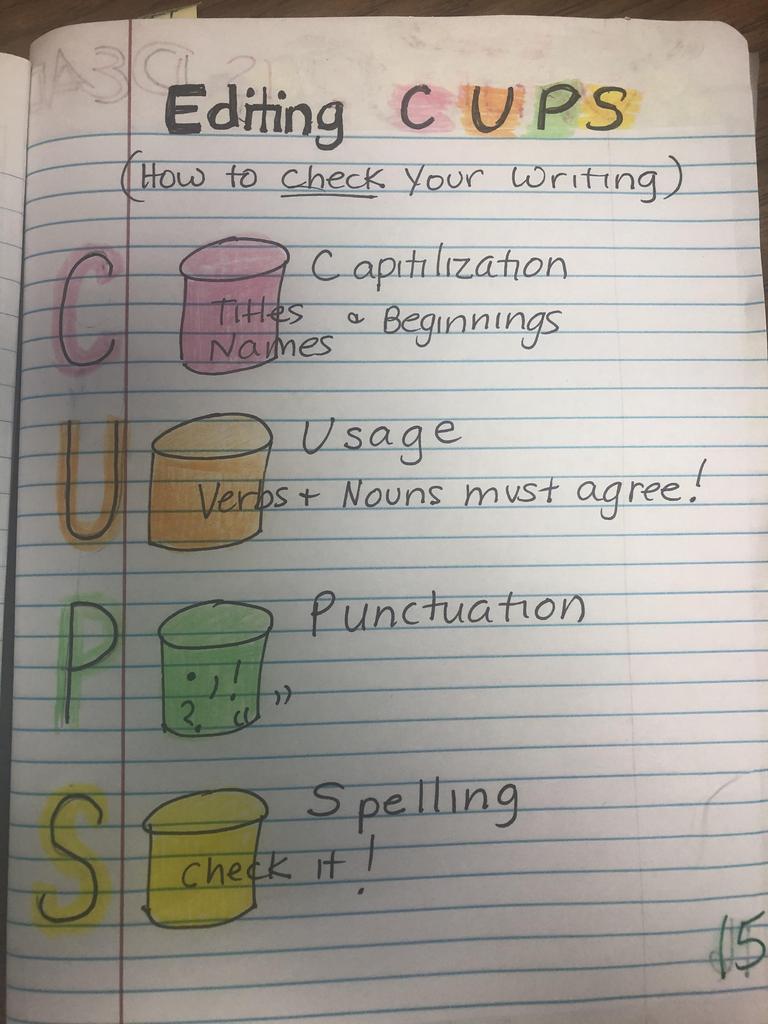 Editing CUPS
(How to check Your Writing)
C Capitilization
Titles & Beginnings
Names
U Usage
Verbs + Nouns must agree!
P Punctuation
. , !
? “ ”
S Spelling
check it!
15